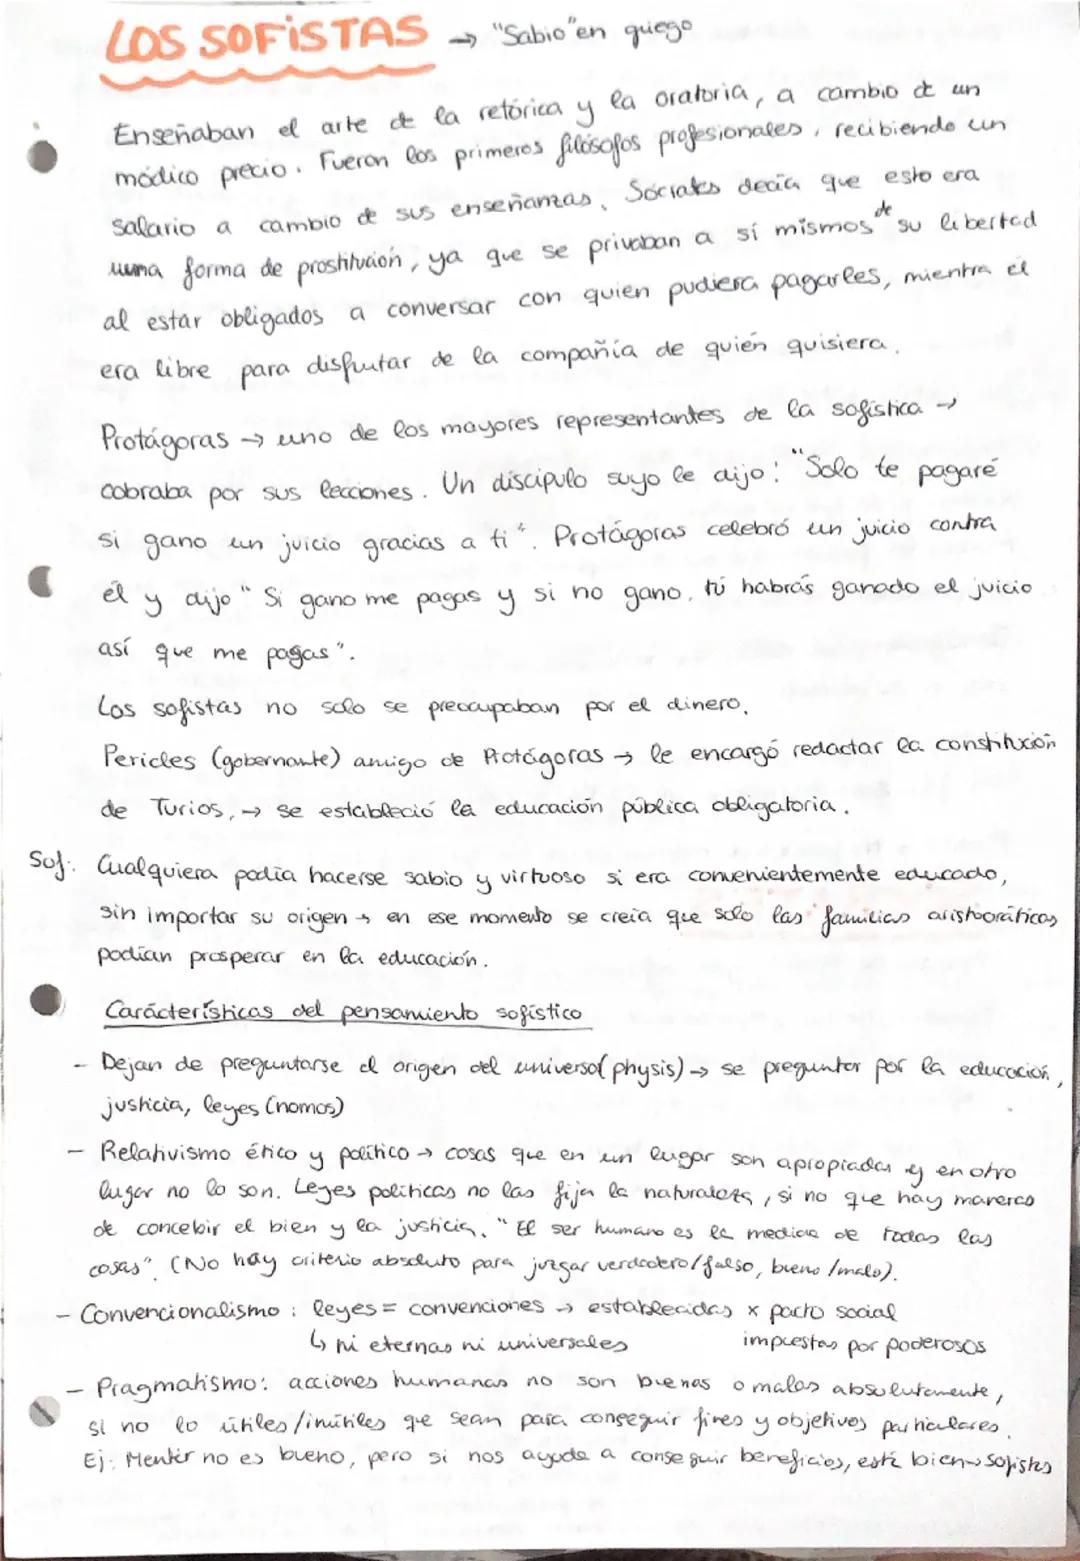 LOS SOFISTAS → "Sabio" en griego
Enseñaban el arte de la retórica y la oratoria, a cambio de un
módico precio. Fueron los primeros filósofos profesionales, recibiendo un
salario a cambio de sus enseñanzas. Sócrates decía que esto era
una forma de prostitución, ya que se privaban a sí mismos de su libertad
al estar obligados a conversar con quien pudiera pagarles, mientra él
era libre para disfrutar de la compañía de quién quisiera.
Protágoras → uno de los mayores representantes de la sofística →
cobraba por sus lecciones. Un discípulo suyo le dijo: "Solo te pagaré
si gano un juicio gracias a ti". Protágoras celebró un juicio contra
él y dijo "Si gano me pagas y si no gano, tú habrás ganado el juicio
así que me pagas".
Los sofistas no solo se preocupaban por el dinero.
Pericles (gobernante) amigo de Protágoras → le encargó redactar la constitución
de Turios, → se estableció la educación pública obligatoria.
Sof: Cualquiera podía hacerse sabio y virtuoso si era convenientemente educado,
sin importar su origen → en ese momento se creía que solo las familias aristocráticas
podían prosperar en la educación.
Carácterísticas del pensamiento sofístico
- Dejan de preguntarse el origen del universo (physis) → se preguntar por la educación,
justicia, leyes (nomos)
- Relativismo ético y político → cosas que en un lugar son apropiadas y en otro
lugar no lo son. Leyes políticas no las fija la naturaleza, si no que hay maneras
de concebir el bien y la justicia. "El ser humano es la medida de todas las
cosas". (No hay criterio absoluto para juzgar verdadero/falso, bueno/malo).
- Convencionalismo: leyes = convenciones → establecidas x pacto social
↳ ni eternas ni universales impuestas por poderosos
- Pragmatismo: acciones humanas no son buenas o malas absolutamente,
si no lo útiles/inútiles que sean para conseguir fines y objetivos particulares.
Ej: Mentir no es bueno, pero si nos ayuda a conseguir beneficios, está bien → sofistas